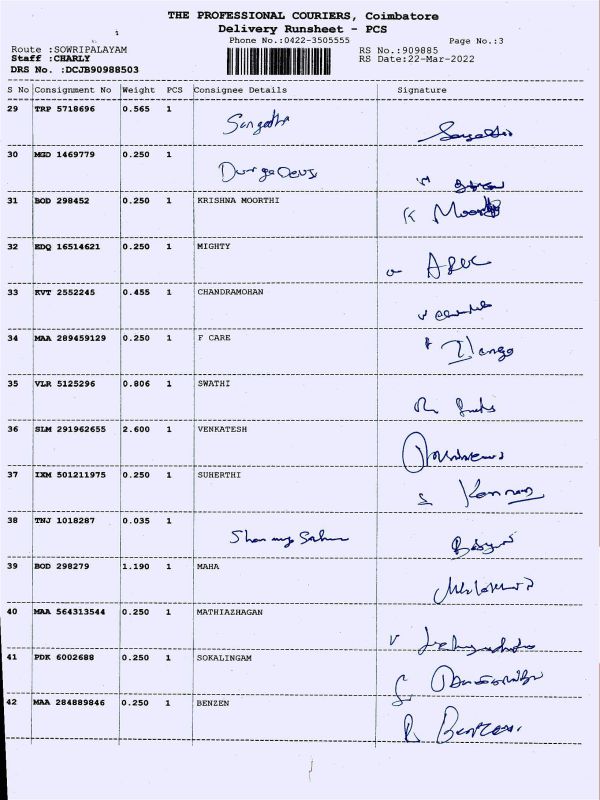 THE PROFESSIONAL COURIERS, Coimbatore
Delivery Runsheet - PCS
Phone No.:0422-3505555 Page No.:3
Route :SOWRIPALAYAM RS No.:909885
Staff :CHARLY RS Date:22-Mar-2022
DRS No. :DCJB90988503
S No Consignment No Weight PCS Consignee Details Signature
29 TRP 5718696 0.565 1 Sangeetha
30 MGD 1469779 0.250 1 Durga Devi
31 BOD 298452 0.250 1 KRISHNA MOORTHI K Moorthi
32 EDQ 16514621 0.250 1 MIGHTY
33 KVT 2552245 0.455 1 CHANDRAMOHAN
34 MAA 289459129 0.250 1 F CARE Ilango
35 VLR 5125296 0.806 1 SWATHI
36 SLM 291962655 2.600 1 VENKATESH
37 IXM 501211975 0.250 1 SUHERTHI S Kannan
38 TNJ 1018287 0.035 1
39 BOD 298279 1.190 1 MAHA
40 MAA 564313544 0.250 1 MATHIAZHAGAN
41 PDK 6002688 0.250 1 SOKALINGAM
42 MAA 284889846 0.250 1 BENZEN R Benzen